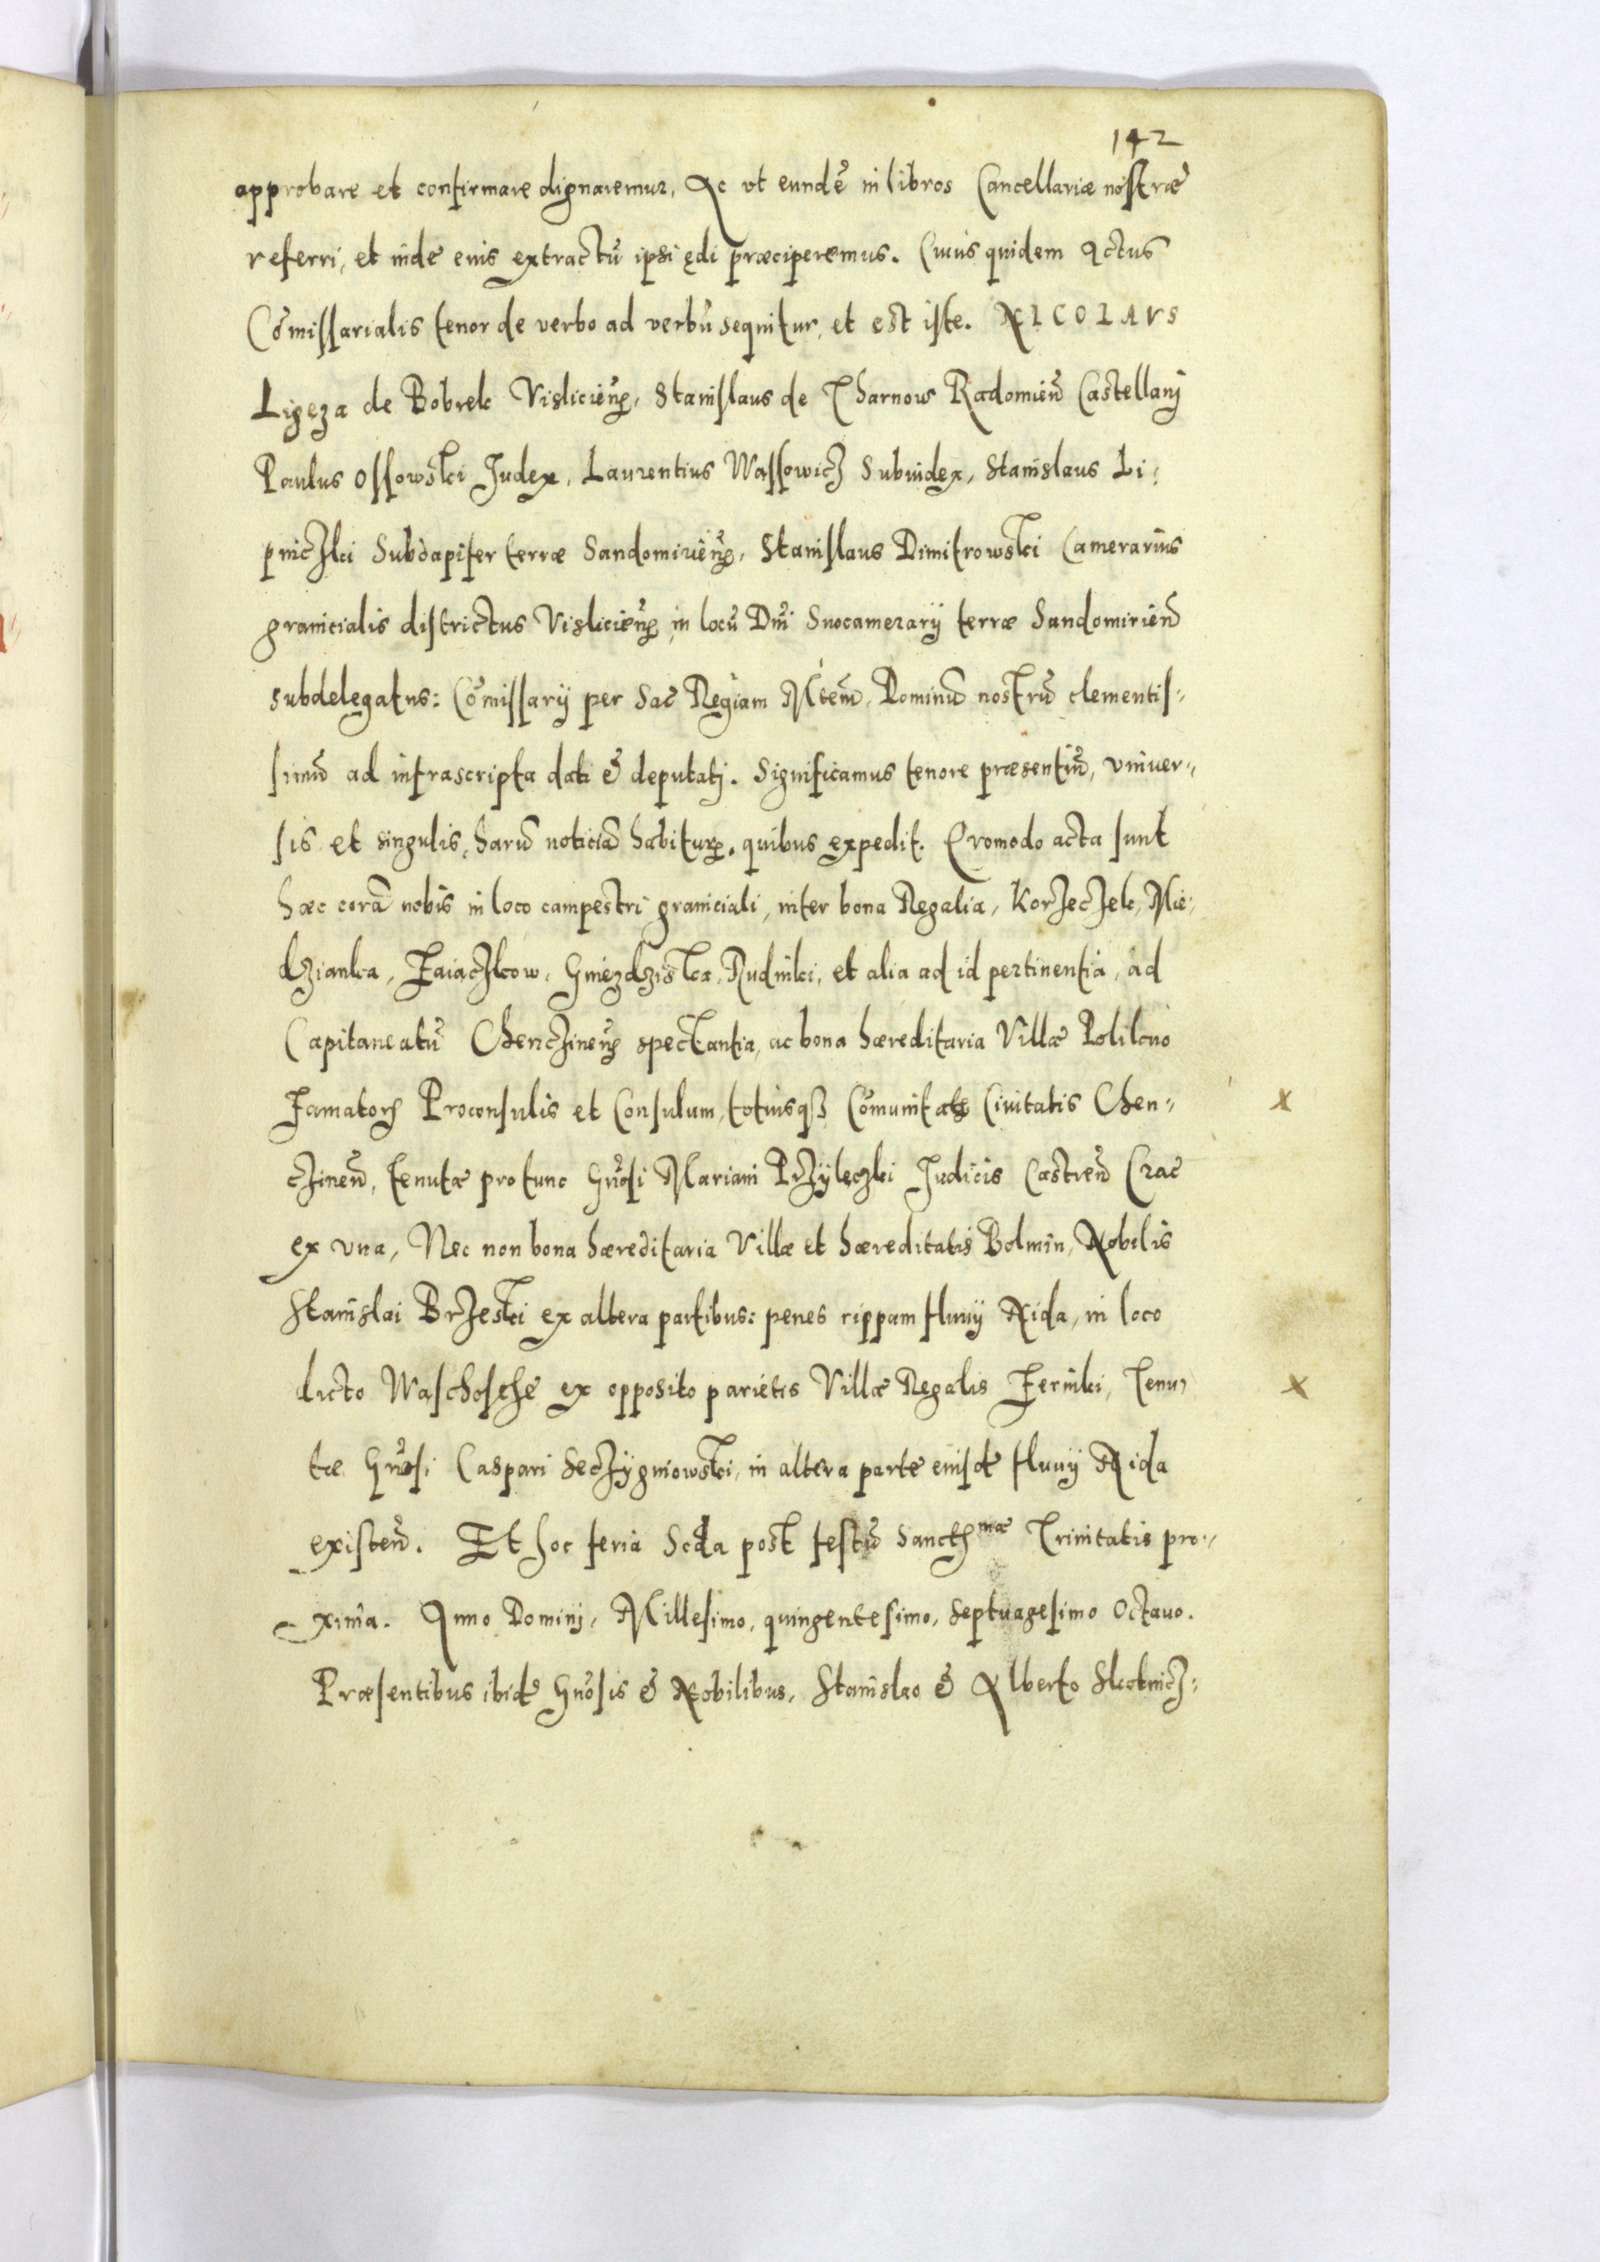 142
approbare et confirmare dignaremur, Ac vt eundē in libros Cancellariæ nostræ
referri, et inde eius extractū ipsi ędi præciperemus. Cuius quidem Actus
Cōmissarialis tenor de verbo ad verbū sequitur, et est iste. NICOLAVS
Ligęza de Bobrek Visliciēn, Stanislaus de Tharnow Radomieñ Castellanj
Paulus Ossowski Judex, Laurentius Wassowicz Subiudex, Stanislaus Li-
pniczki Subdapifer terræ Sandomirien, Stanislaus Dimitrowski Camerarius
granicialis districtus Vislicien, in locū Dñi Succamerarij terræ Sandomirieñ
subdelegatus: Cōmissarij per Sac Regiam Mtem, Dominū nostrū clementis-
simū ad infrascripta dati & deputatj. Significamus tenore præsentiū, vniuer-
sis et singulis, harū noticiā habiturꝝ, quibus expedit. Quomodo acta sunt
hæc corā nobis in loco campestri graniciali, inter bona Regalia, Korzeczek, Mie-
dzianka, Zaiaczkow, Gniezdziska, Rudniki, et alia ad id pertinentia, ad
Capitaneatū Chenczinen spectantia, ac bona hæreditaria Villæ Polikno
Famatorꝝ Proconsulis et Consulum, totiusqꝫ Cōmunitatis Ciuitatis Chen-
czineñ, tenutæ pro tunc Gnosi Mariani Przyleczki Judicis Castreñ Crac
ex vna, Nec non bona hæreditaria Villæ et hæreditatis Bolmin, Nobilis
Stanislai Brzeski ex altera partibus: penes rippam fluuij Nida, in loco
dicto Waschosche ex opposito parietis Villæ Regalis Zerniki, Tenu-
tæ Gnosi Caspari Seczygniowski, in altera parte eiusdē fluuij Nida
existeñ. Et hoc feria Scda post festū Sanctissmæ Trinitatis pro-
xima. Anno Domini, Millesimo, quingentesimo, Septuagesimo Octauo.
Præsentibus ibidē Gnosis & Nobilibus, Stanislao & Alberto Skotnicz-